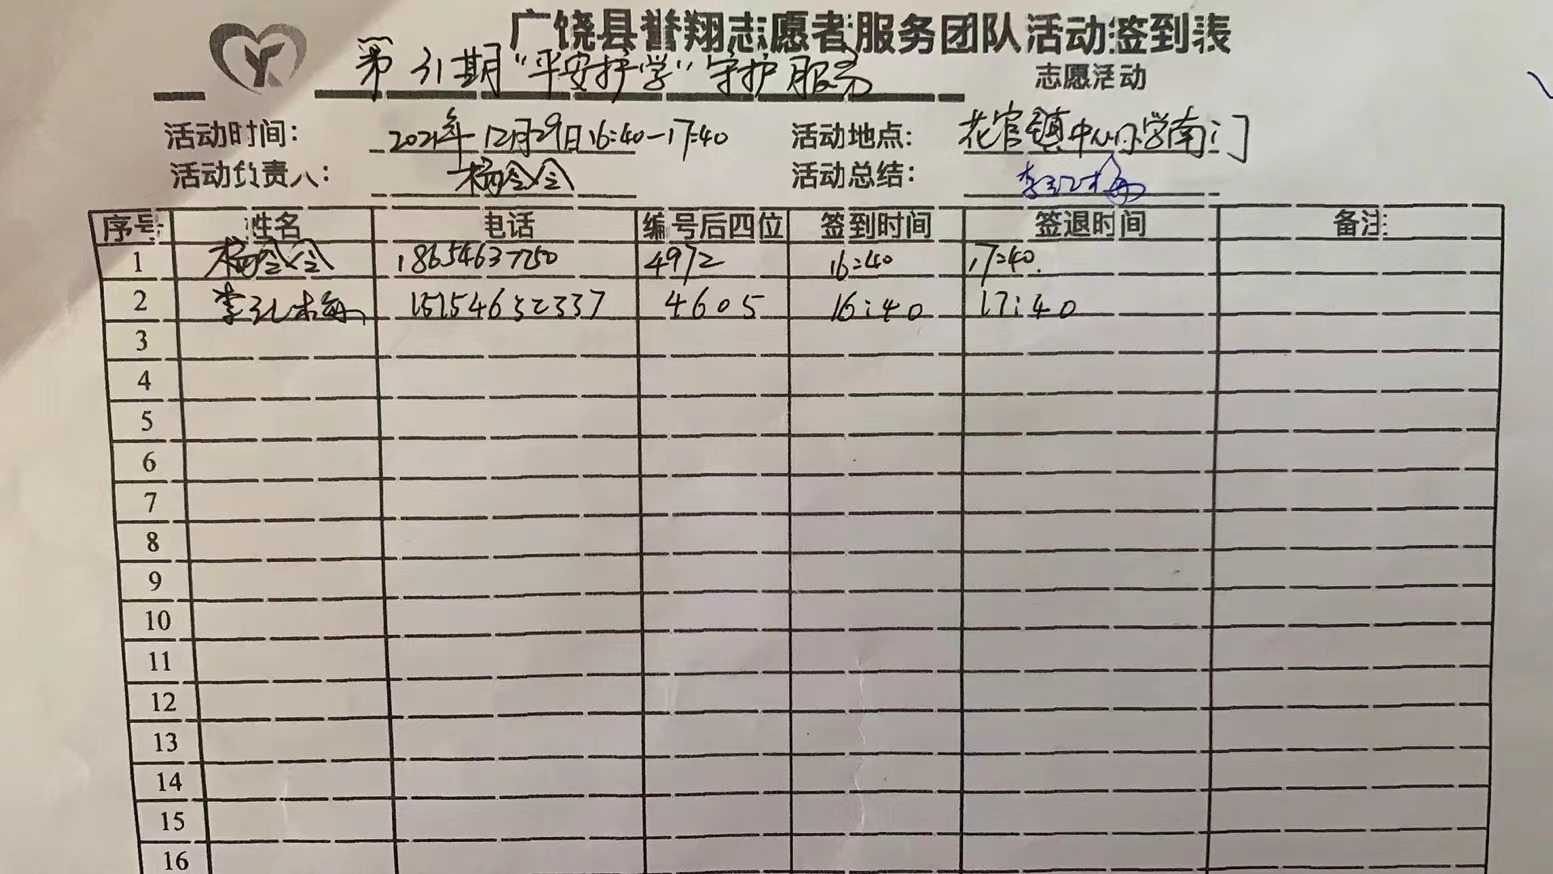 广饶县誉翔志愿者服务团队活动签到表
第31期“平安护学”守护服务 志愿活动
活动时间: 2021年12月29日16:40-17:40 活动地点: 花官镇中心小学南门
活动负责人: 杨令令 活动总结: 李红梅
序号 姓名 电话 编号后四位 签到时间 签退时间 备注
1 杨令令 18654637250 4972 16:40 17:40
2 李红梅 15154632337 4605 16:40 17:40
3
4
5
6
7
8
9
10
11
12
13
14
15
16